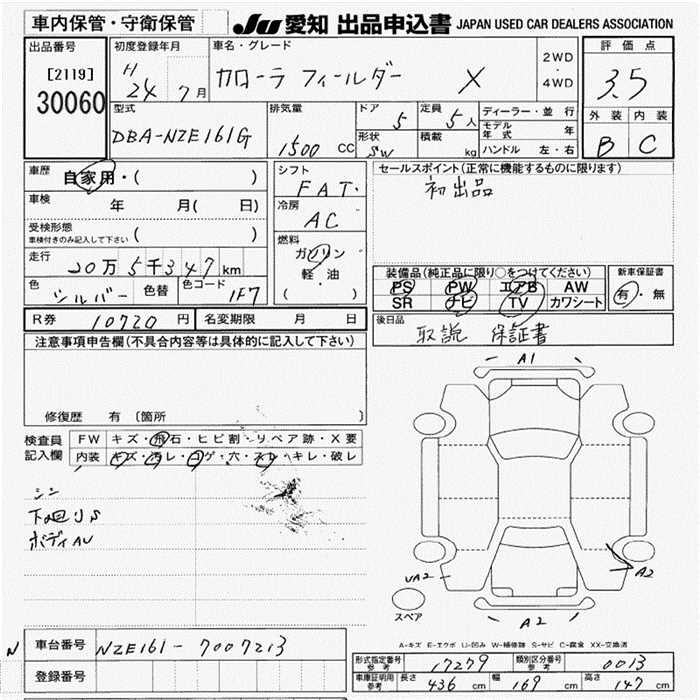 車内保管・守衛保管
JU 愛知 出品申込書 JAPAN USED CAR DEALERS ASSOCIATION
出品番号
[2119]
30060
初度登録年月
H 24 7月
車名・グレード
カローラ フィールダー X
2WD
・
4WD
評価点
3.5
型式
DBA-NZE161G
排気量
1500 CC
ドア 5
定員 5人
形状 SW
積載 kg
ディーラー・並行
モデル年式 年
ハンドル 左・右
外装 内装
B C
車歴
自家用・( )
車検
年 月( 日)
受検形態
車検付きのみ記入して下さい ( )
走行
20万5千347km
色
シルバー 色替
色コード 1F7
シフト
FAT
冷房
AC
燃料
ガソリン
軽・油
( )
セールスポイント(正常に機能するものに限ります)
初出品
装備品(純正品に限り○をつけてください)
PS PW エアB AW
SR ナビ TV カワシート
新車保証書
有・無
R券 10720 円 名変期限 月 日
後日品
取説 保証書
注意事項申告欄(不具合内容等は具体的に記入して下さい)
修復歴 有 〔箇所 〕
検査員
記入欄
FW キズ・飛石・ヒビ割・リペア跡・X要
内装 キズ・汚レ・コゲ・穴・スレ・キレ・破レ
シン
下回りS
ボディAU
A1
UA2
A2
A2
スペア
A-キズ E-エクボ U-凹み W-補修跡 S-サビ C-腐食 XX-交換済
N 車台番号 NZE161-7007213
登録番号
形式指定番号 参考 17279 類別区分番号 参考 0013
車庫証明用 参考 長さ 436 cm 幅 169 cm 高さ 147 cm